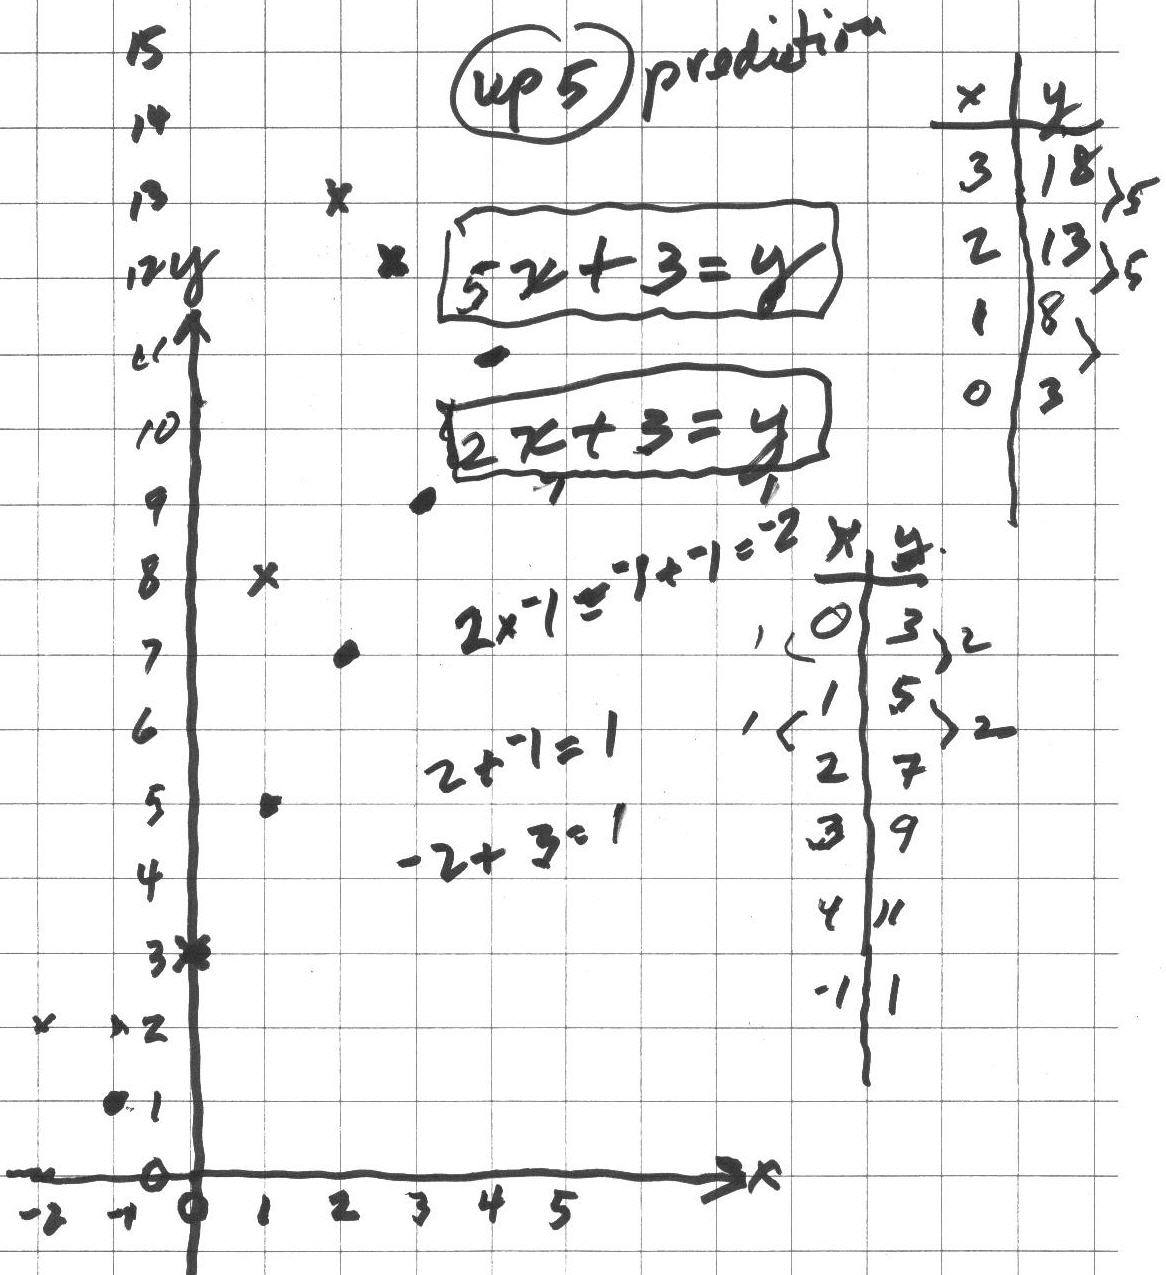 up 5 prediction
15
14
13
12 y
11
10
9
8
7
6
5
4
3
2
1
0
-2 -1 0 1 2 3 4 5 x
5x+3=y
2x+3=y
2x⁻1=⁻1+⁻1=⁻2
2+⁻1=1
-2+3=1
x y
3 18
5
2 13
5
1 8
0 3
x y
0 3
1 2
1 5
1 2
2 7
3 9
4 11
-1 1